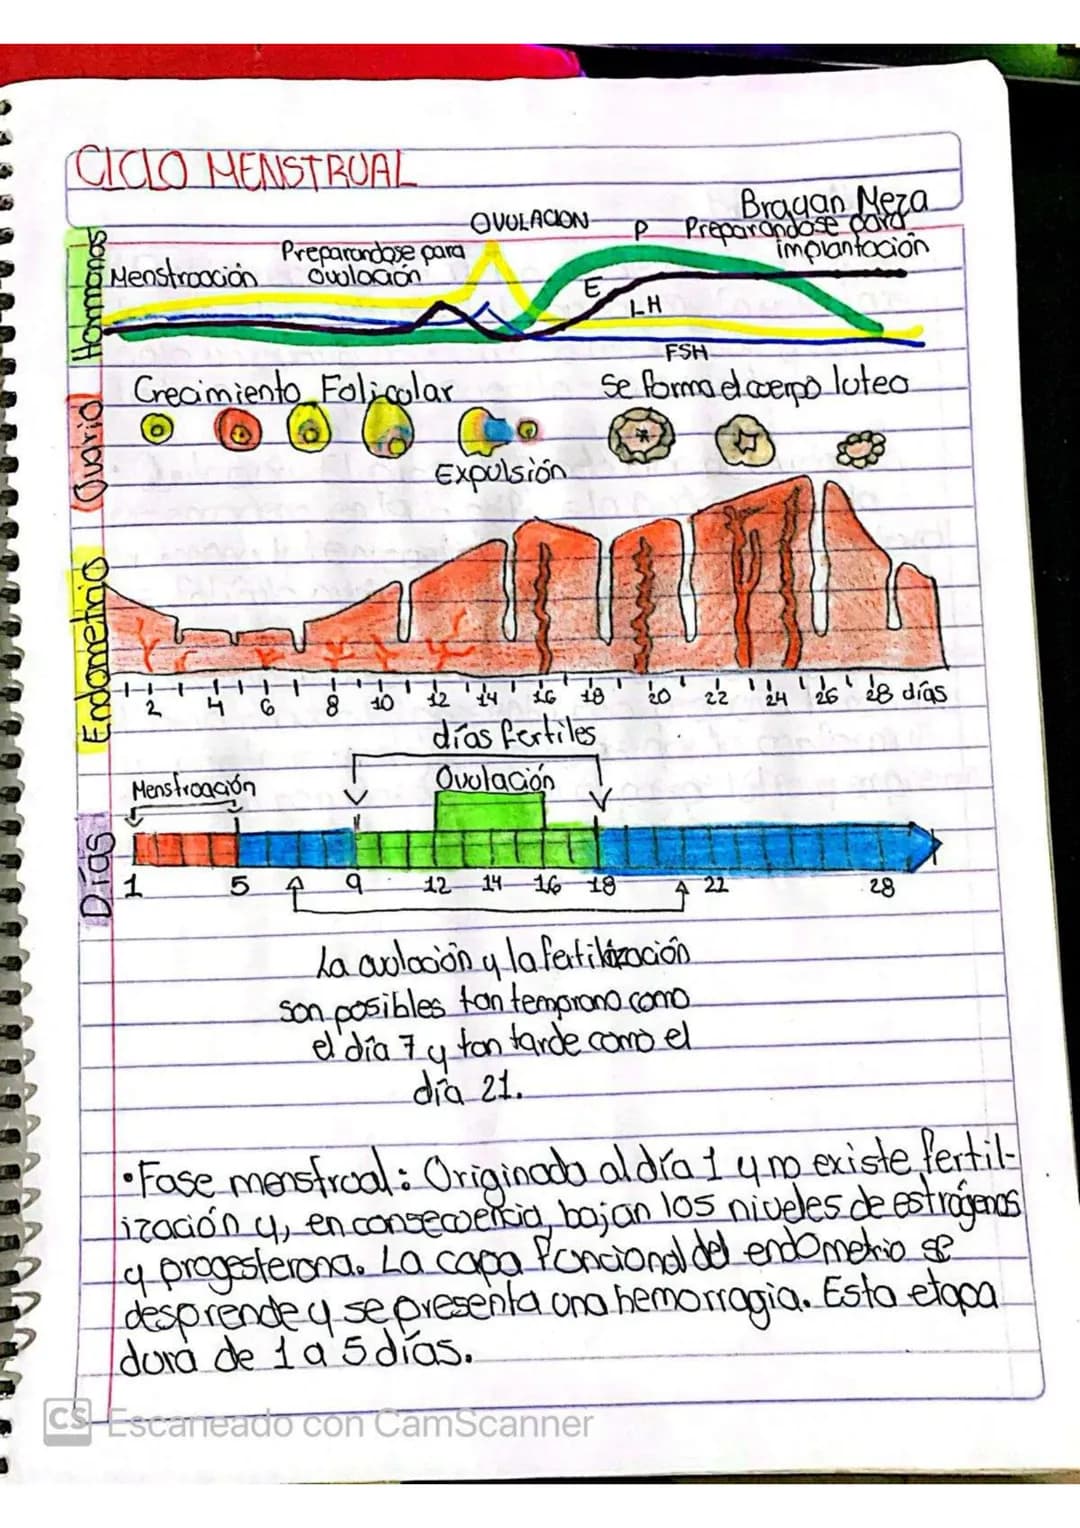 CICLO MENSTRUAL
Brayan Meza
Hormonas
Menstruación
Preparandose para
ovulación
OVULACION
P
Preparandose para
implantación
E
LH
FSH
Ovario
Crecimiento Folicular
Se forma el cuerpo luteo
Expulsión
Endometrio
2 4 6 8 10 12 14 16 18 20 22 24 26 28 días
días fertiles
Menstruación
Ovulación
Días
1 5 9 12 14 16 18 22 28
La ovulación y la fertilización
son posibles tan temprano como
el día 7 y tan tarde como el
día 21.
•Fase menstrual: Originada al día 1 y no existe fertil-
ización y, en consecuencia, bajan los niveles de estrógenos
y progesterona. La capa funcional del endometrio se
desprende y se presenta una hemorragia. Esta etapa
dura de 1 a 5 días.
CS Escaneado con CamScanner